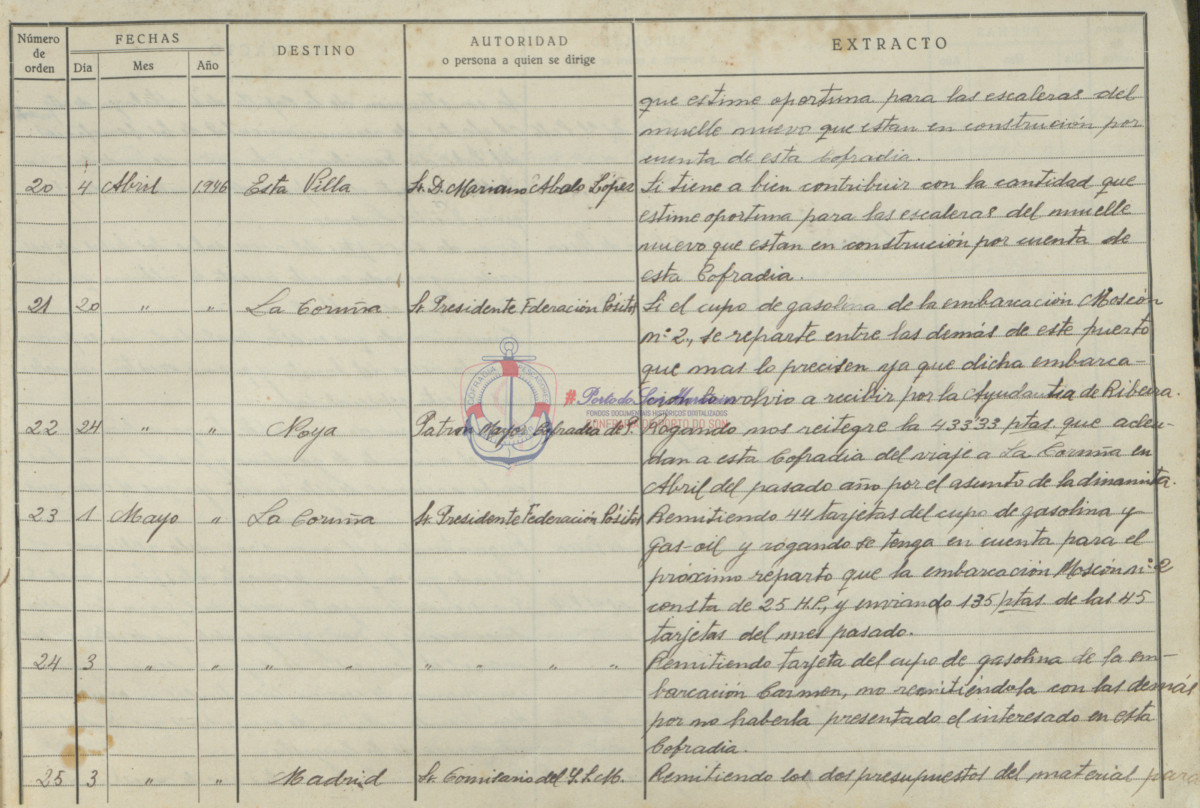 Número de orden
FECHAS
Día Mes Año
DESTINO
AUTORIDAD
o persona a quien se dirige
EXTRACTO
que estime oportuna para las escaleras del
muelle nuevo que estan en construción por
cuenta de esta Cofradia.
20 4 Abril 1.946 Esta Villa Sr. D. Mariano Abalo López Si tiene a bien contribuir con la cantidad que
estime oportuna para las escaleras del muelle
nuevo que estan en construción por cuenta de
esta Cofradia.
21 20 " " La Coruña Sr. Presidente Federación Pósitos Si el cupo de gasolina de la embarcación Moscón
nº 2., se reparte entre las demás de este puerto
que mas lo precisen ya que dicha embarca-
volvio a recibir por la Ayudantia de Ribeira.
#PortodoSon
FONDOS DOCUMENTAIS HISTÓRICOS DIXITALIZADOS
CONFRARÍA DE PORTO DO SON
22 24 " " Noya Patron Mayor Cofradia de P. Rogando nos reitegre la 433'33 ptas. que adeu-
dan a esta Cofradia del viaje a La Coruña en
Abril del pasado año por el asunto de la dinamita.
23 1 Mayo " La Coruña Sr. Presidente Federación Pósitos Remitiendo 44 tarjetas del cupo de gasolina y
Gas-oil y rogando se tenga en cuenta para el
próximo reparto que la embarcación Moscón nº 2
consta de 25 H.P., y enviando 135 ptas. de las 45
tarjetas del mes pasado.
24 3 " " " " " " " " Remitiendo tarjeta del cupo de gasolina de la em-
barcación Carmen, no remitiéndola con las demás
por no haberla presentado el interesado en esta
Cofradia.
25 3 " " Madrid Sr. Comisario del Remitiendo los dos presupuestos del material para